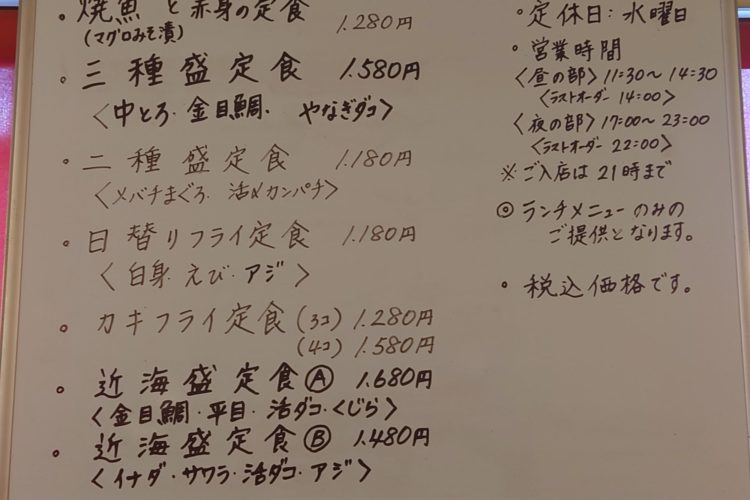 ・焼魚と赤身の定食 1.280円
(マグロみそ漬)
・三種盛定食 1.580円
〈中とろ・金目鯛・ やなぎダコ〉
・二種盛定食 1.180円
〈メバチまぐろ・活〆カンパチ〉
・日替りフライ定食 1.180円
〈白身・えび・アジ〉
・カキフライ定食 (3コ) 1.280円
(4コ) 1.580円
・近海盛定食Ⓐ 1.680円
〈金目鯛・平目・活ダコ・くじら〉
・近海盛定食Ⓑ 1.480円
〈イナダ・サワラ・活ダコ・アジ〉
・定休日:水曜日
・営業時間
〈昼の部〉11:30〜14:30
〈ラストオーダー 14:00〉
〈夜の部〉17:00〜23:00
〈ラストオーダー 22:00〉
※ご入店は21時まで
◎ランチメニューのみの
ご提供となります。
・税込価格です。